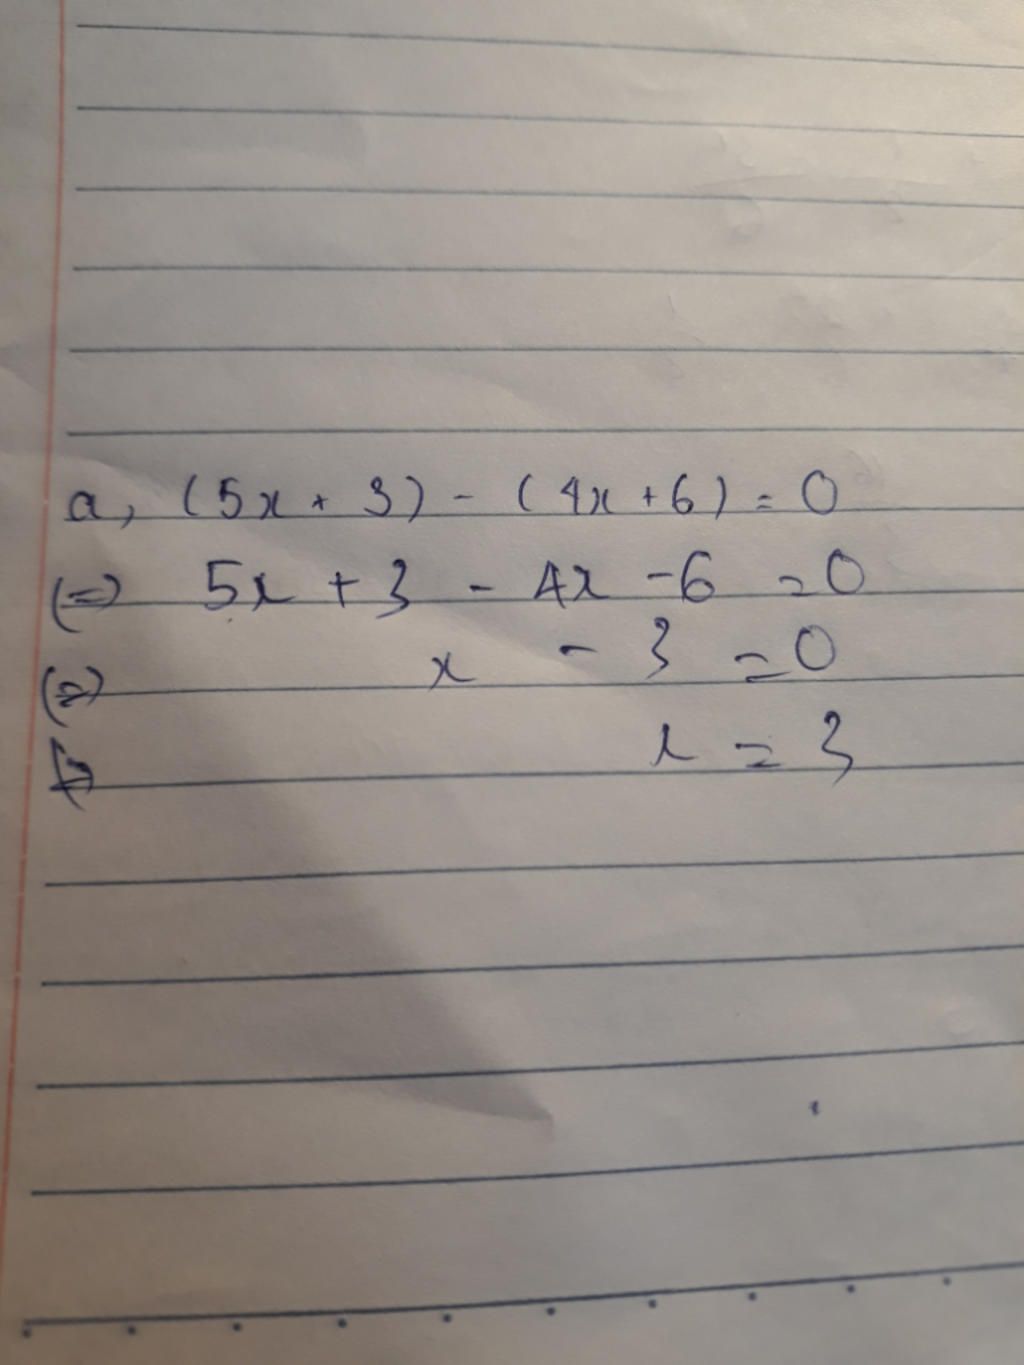 a, (5x + 3) - (4x + 6) = 0
(=) 5x + 3 - 4x - 6 = 0
(=) x - 3 = 0
x = 3